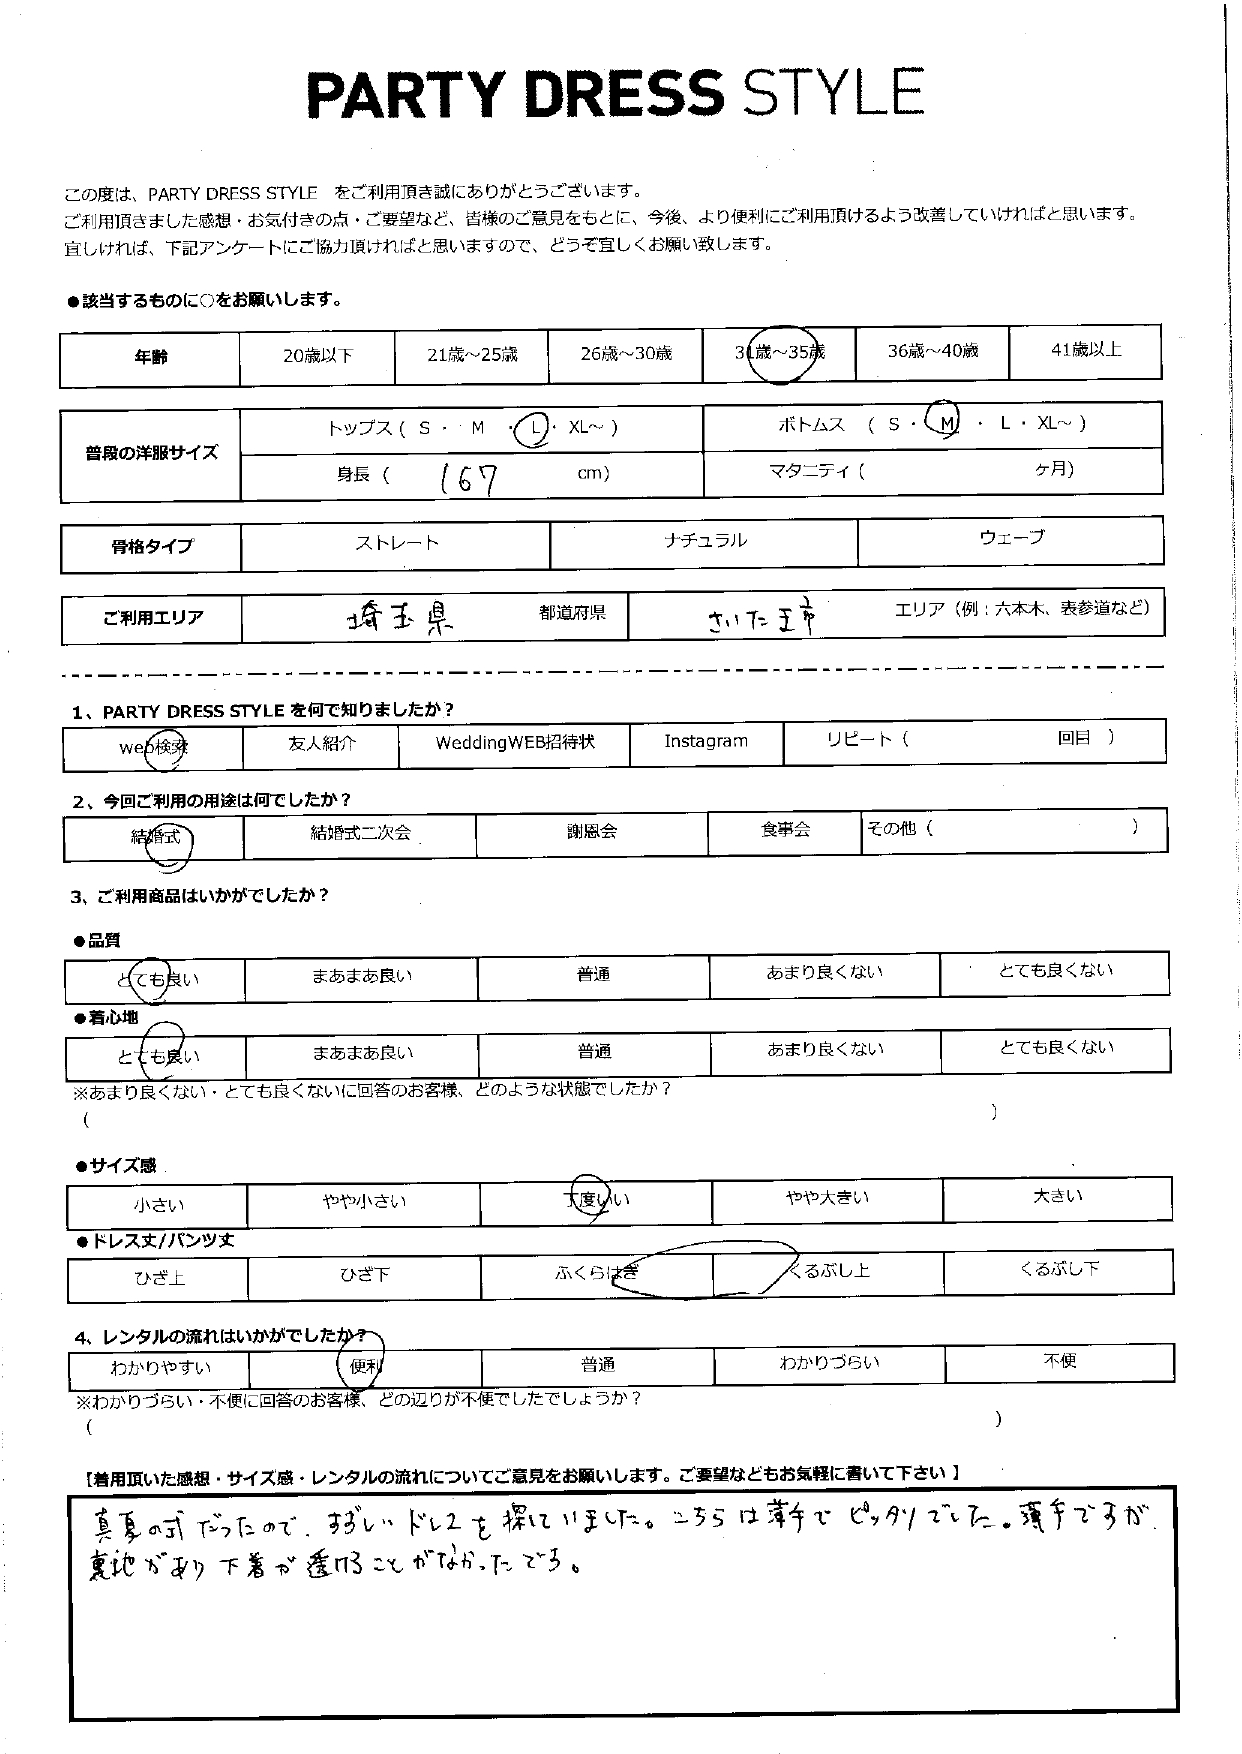 PARTY DRESS STYLE
この度は、PARTY DRESS STYLE をご利用頂き誠にありがとうございます。
ご利用頂きました感想・お気付きの点・ご要望など、皆様のご意見をもとに、今後、より便利にご利用頂けるよう改善していければと思います。
宜しければ、下記アンケートにご協力頂ければと思いますので、どうぞ宜しくお願い致します。
●該当するものに○をお願いします。
年齢 20歳以下 21歳～25歳 26歳～30歳 31歳～35歳 36歳～40歳 41歳以上
普段の洋服サイズ トップス ( S ・ M ・ L ・ XL～ ) ボトムス ( S ・ M ・ L ・ XL～ )
身長 ( 167 cm) マタニティ ( ヶ月)
骨格タイプ ストレート ナチュラル ウェーブ
ご利用エリア 埼玉県 都道府県 さいたま市 エリア（例：六本木、表参道など）
1、PARTY DRESS STYLE を何で知りましたか？
web検索 友人紹介 WeddingWEB招待状 Instagram リピート ( 回目 )
2、今回ご利用の用途は何でしたか？
結婚式 結婚式二次会 謝恩会 食事会 その他 ( )
3、ご利用商品はいかがでしたか？
●品質
とても良い まあまあ良い 普通 あまり良くない とても良くない
●着心地
とても良い まあまあ良い 普通 あまり良くない とても良くない
※あまり良くない・とても良くないに回答のお客様、どのような状態でしたか？
( )
●サイズ感
小さい やや小さい 丁度いい やや大きい 大きい
●ドレス丈/パンツ丈
ひざ上 ひざ下 ふくらはぎ くるぶし上 くるぶし下
4、レンタルの流れはいかがでしたか？
わかりやすい 便利 普通 わかりづらい 不便
※わかりづらい・不便に回答のお客様、どの辺りが不便でしたでしょうか？
( )
【着用頂いた感想・サイズ感・レンタルの流れについてご意見をお願いします。ご要望などもお気軽に書いて下さい】
真夏の式だったので、すずしいドレスを探していました。こちらは薄手でピッタリでした。薄手ですが、
裏地があり下着が透けることがなかったです。